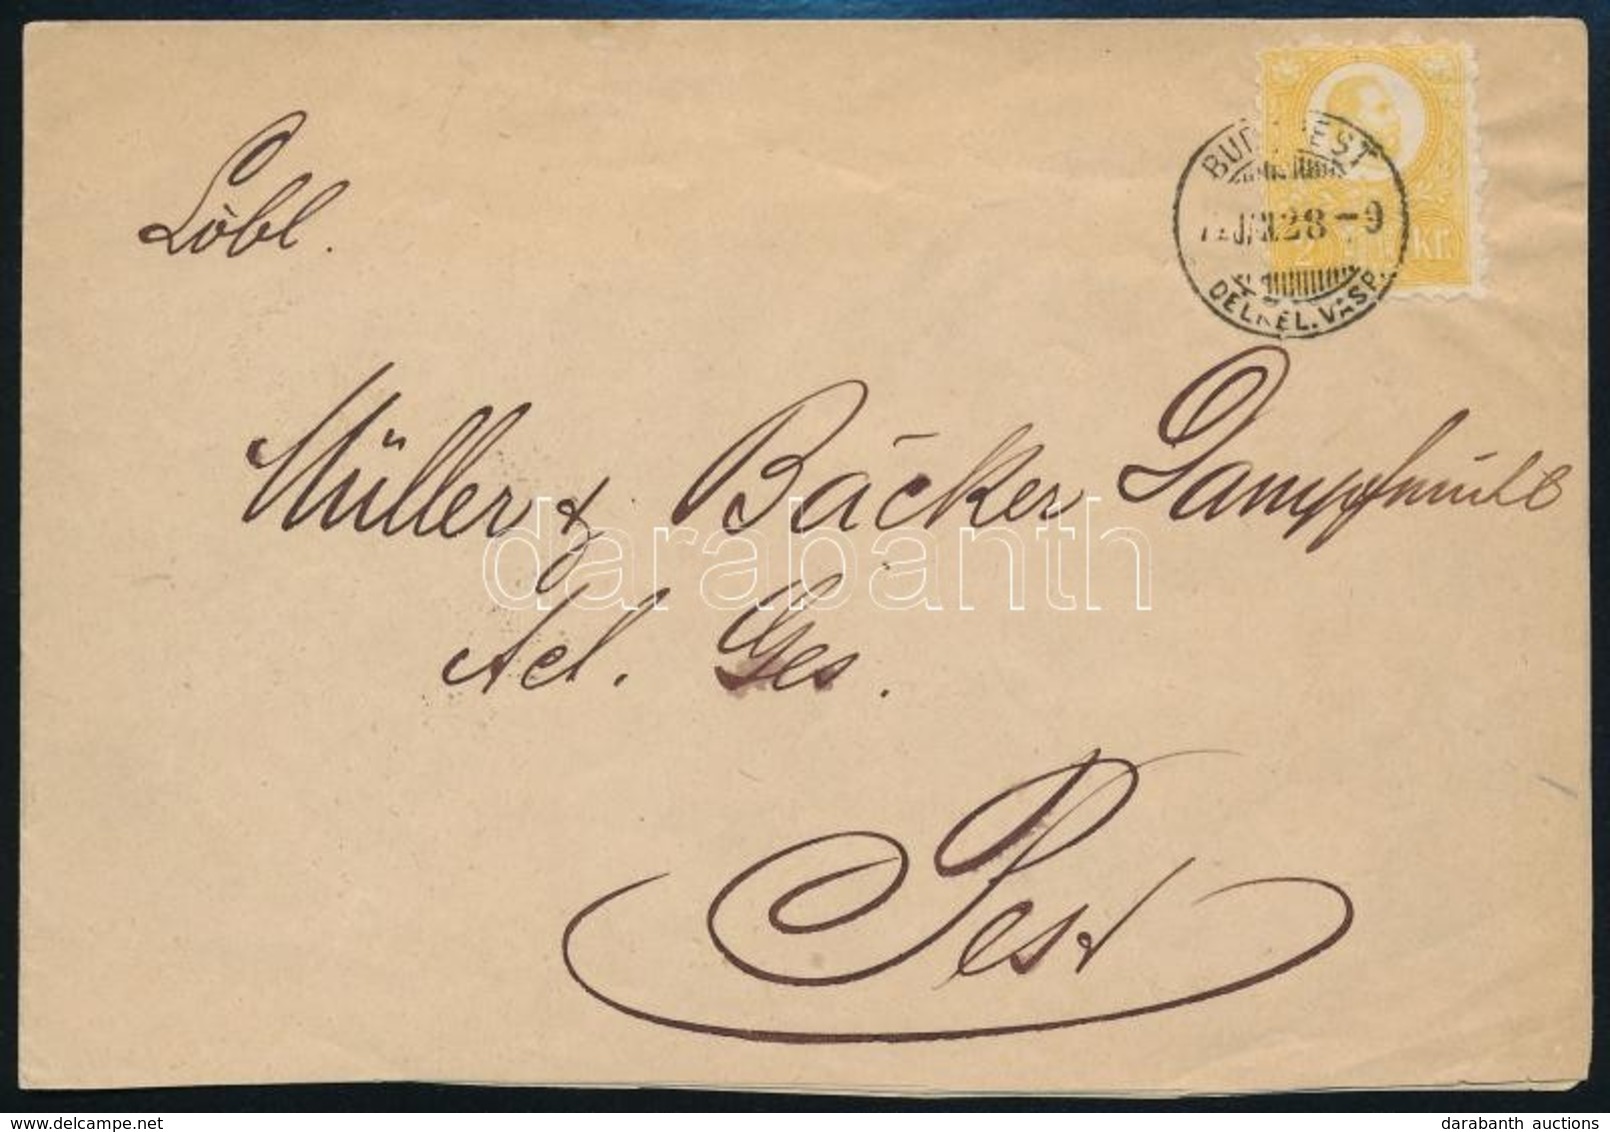 Löbl.
BUDAPEST
72 JAN 28 - 9
DELKEL. VASP.
2 KR.
Müller & Bäcker Dampfmühl
Act. Ges.
Pest
darabanth
delcampe.net
darabanth auctions